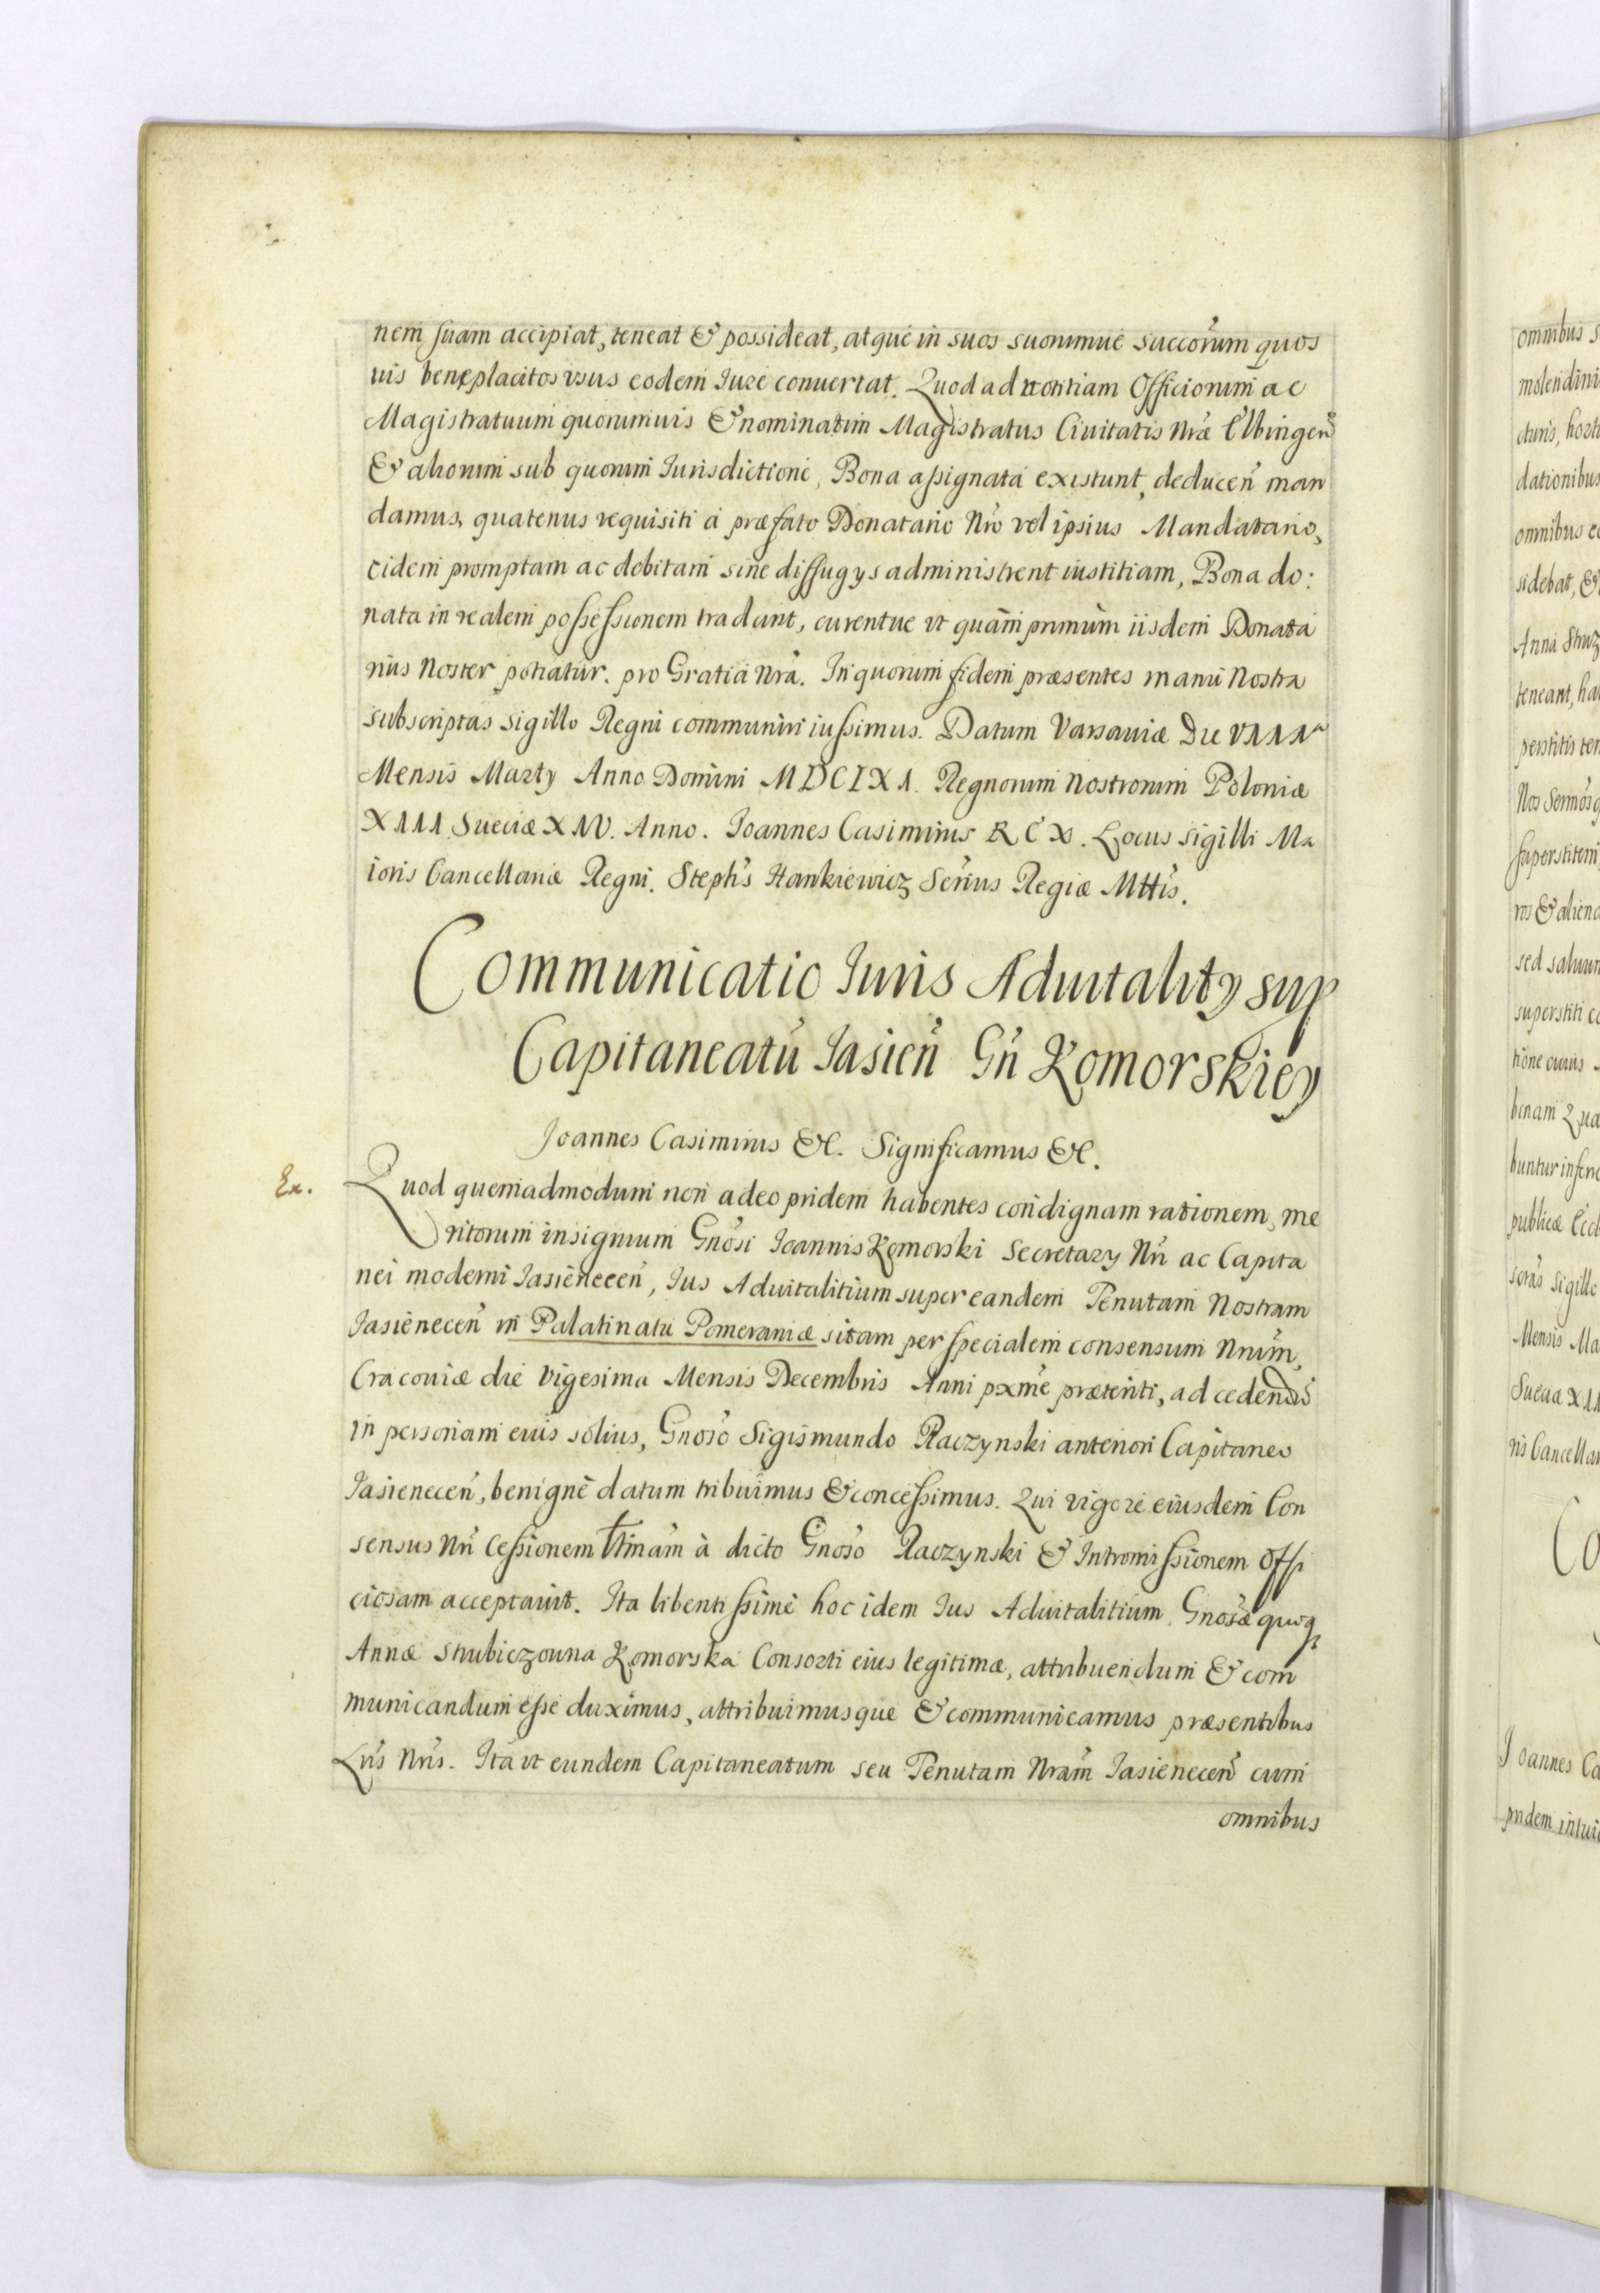 nem suam accipiat, teneat & possideat, atque in suos suorumue Succorum quos
uis beneplacitos vsus eodem Iure conuertat. Quod ad notitiam Officiorum ac
Magistratuum quorumuis & nominatim Magistratus Ciuitatis Nræ Elbingen̄
& aliorum sub quorum Iurisdictione, Bona assignata existunt, deducen̄ man
damus, quatenus requisiti a præfato Donatario Nro vel ipsius Mandatario,
eidem promptam ac debitam sine diffugys administrent iustitiam, Bona do:
nata in realem possessionem tradant, curentue vt quàm primùm iisdem Donata
rius Noster potiatur. pro Gratia Nra. In quorum fidem præsentes manu Nostra
subscriptas sigillo Regni communiri iussimus. Datum Varsauiæ Die VIIIa
Mensis Marty Anno Domini MDCLXI. Regnorum Nostrorum Poloniæ
XIII Sueciæ XIV. Anno. Ioannes Casimirus REX. Locus Sigilli Ma
ioris Cancellariæ Regni. Steph̄s Hankiewicz Secrius Regiæ Mttis.
Communicatio Iuris Aduitality sup
Capitaneatū Iasien̄ Gn̄ Komorskiey
Ioannes Casimirus &c. Significamus &c.
Ex. Quod quemadmodum non adeo pridem habentes condignam rationem, me
ritorum insignium Gnosi Ioannis Komorski Secretary Nri ac Capita
nei moderni Iasienecen̄, Ius Aduitalitium super eandem Tenutam Nostram
Iasienecen̄ in Palatinatu Pomeraniæ sitam per specialem consensum Nrum,
Cracouiæ die Vigesima Mensis Decembris Anni pxme præteriti, ad cedendū
in personam eius solius, Gnoso Sigismundo Raczynski anteriori Capitaneo
Iasienecen̄, benignè datum tribuimus & concessimus. Qui vigore eiusdem Con
sensus Nri Cessionem ltimam à dicto Gnoso Raczynski & Intromissionem Offi
ciosam acceptauit. Ita libentissime hoc idem Ius Aduitalitium, Gnosæ quoq
Annæ Strubiczouna Komorska Consorti eius legitimæ, attribuendum & com
municandum esse duximus, attribuimusque & communicamus præsentibus
Lris Nris. Ita vt eundem Capitaneatum seu Tenutam Nram Iasienecen̄ cum
omnibus